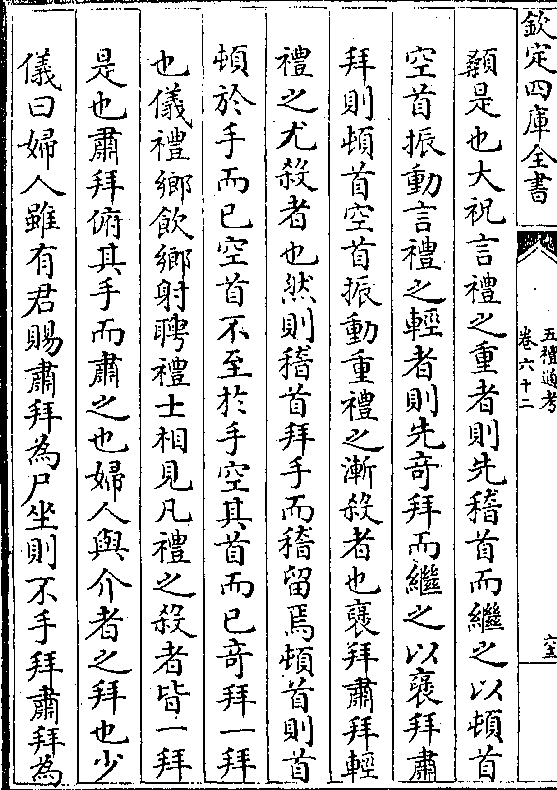 欽定四庫全書
五禮通考
卷六十二
六五
顙是也大祝言禮之重者則先稽首而繼之以頓首
空首振動言禮之輕者則先奇拜而繼之以襃拜肅
拜則頓首空首振動重禮之漸殺者也襃拜肅拜輕
禮之尤殺者也然則稽首拜手而稽留焉頓首則首
頓於手而已空首不至於手空其首而已奇拜一拜
也儀禮鄉飲鄉射聘禮士相見凡禮之殺者皆一拜
是也肅拜俯其手而肅之也婦人與介者之拜也少
儀曰婦人雖有君賜肅拜為尸坐則不手拜肅拜為